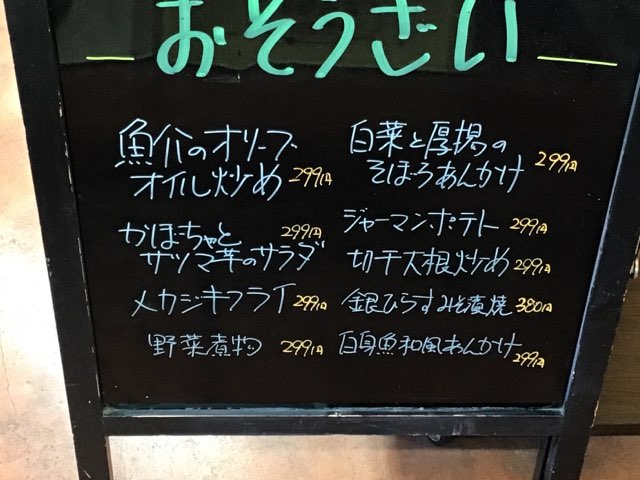 おそうざい
魚介のオリーブ
オイル炒め 299円
かぼちゃと 299円
サツマ芋のサラダ
メカジキフライ 299円
野菜煮物 299円
白菜と厚揚の
そぼろあんかけ 299円
ジャーマンポテト 299円
切干大根炒め 299円
銀ひらすみそ漬焼 380円
白身魚和風あんかけ 299円